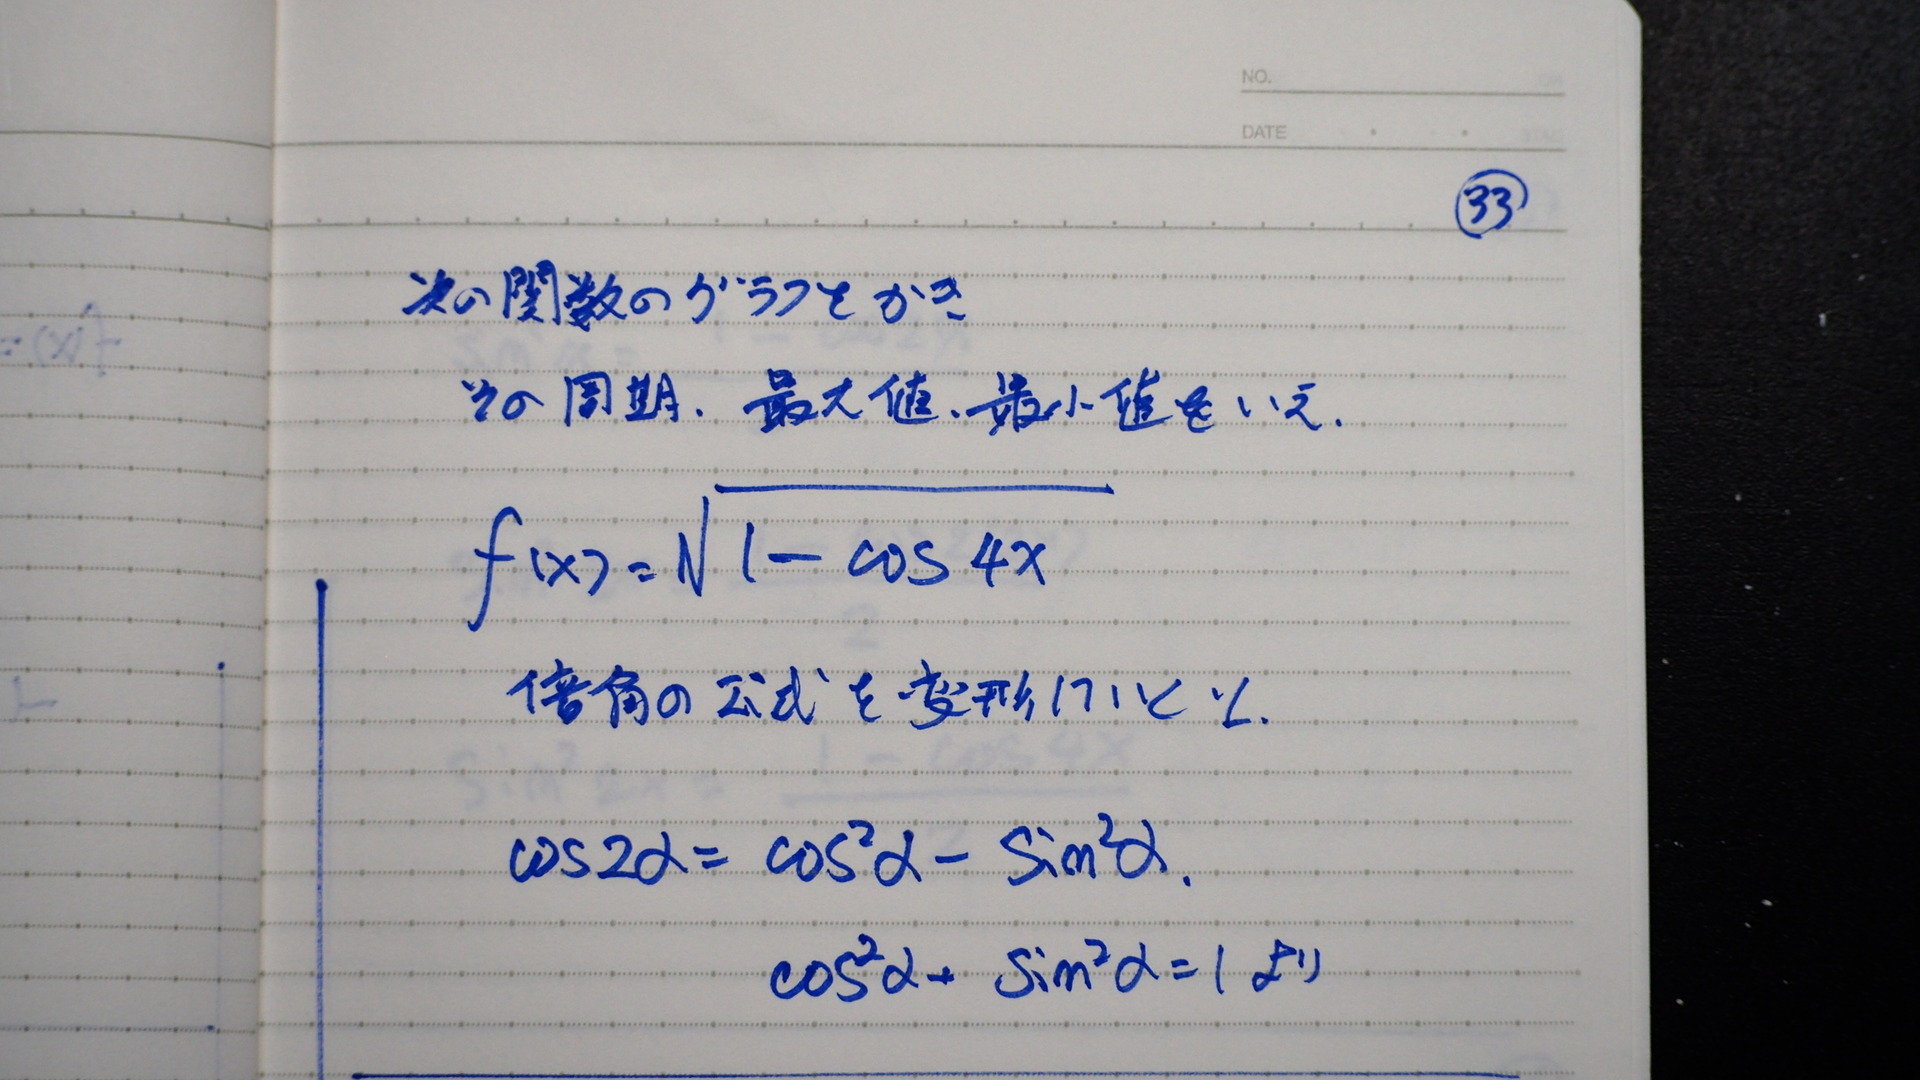 NO.
DATE
33
次の関数のグラフをかき
その周期、最大値、最小値をいえ.
f(x)=√1-cos4x
倍角の公式を変形していくと、
cos2α= cos²α- sin²α.
cos²α+ sin²α=1より